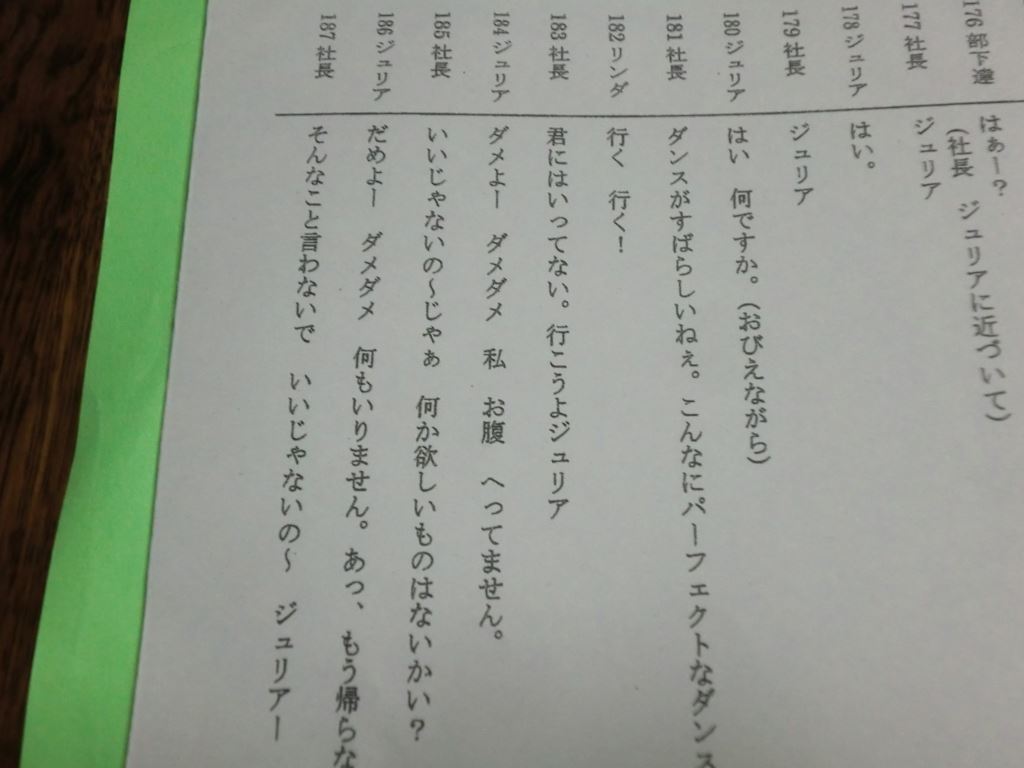 176 部下達 はぁー？
(社長 ジュリアに近づいて)
177 社長 ジュリア
178 ジュリア はい。
179 社長 ジュリア
180 ジュリア はい 何ですか。(おびえながら)
181 社長 ダンスがすばらしいねぇ。こんなにパーフェクトなダンス
182 リンダ 行く 行く！
183 社長 君にはいってない。行こうよジュリア
184 ジュリア ダメよー ダメダメ 私 お腹 へってません。
185 社長 いいじゃないの～じゃぁ 何か欲しいものはないかい？
186 ジュリア だめよー ダメダメ 何もいりません。あっ、もう帰らな
187 社長 そんなこと言わないで いいじゃないの～ ジュリアー